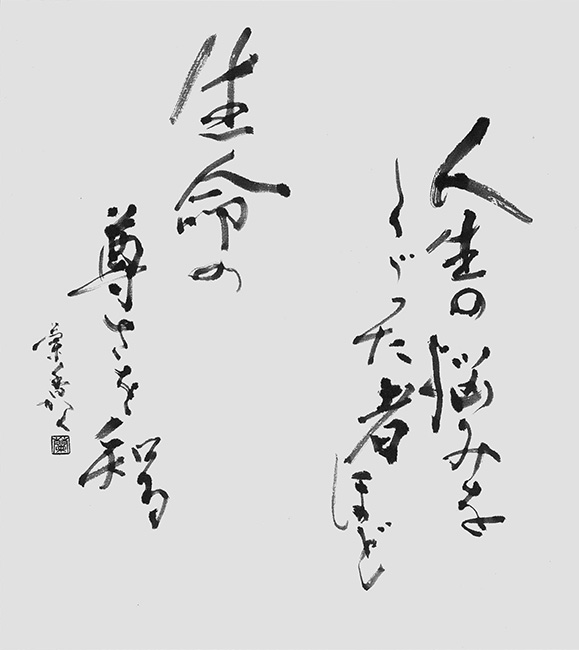 人生の悩みを
くぐった者ほど
生命の
尊さを知る